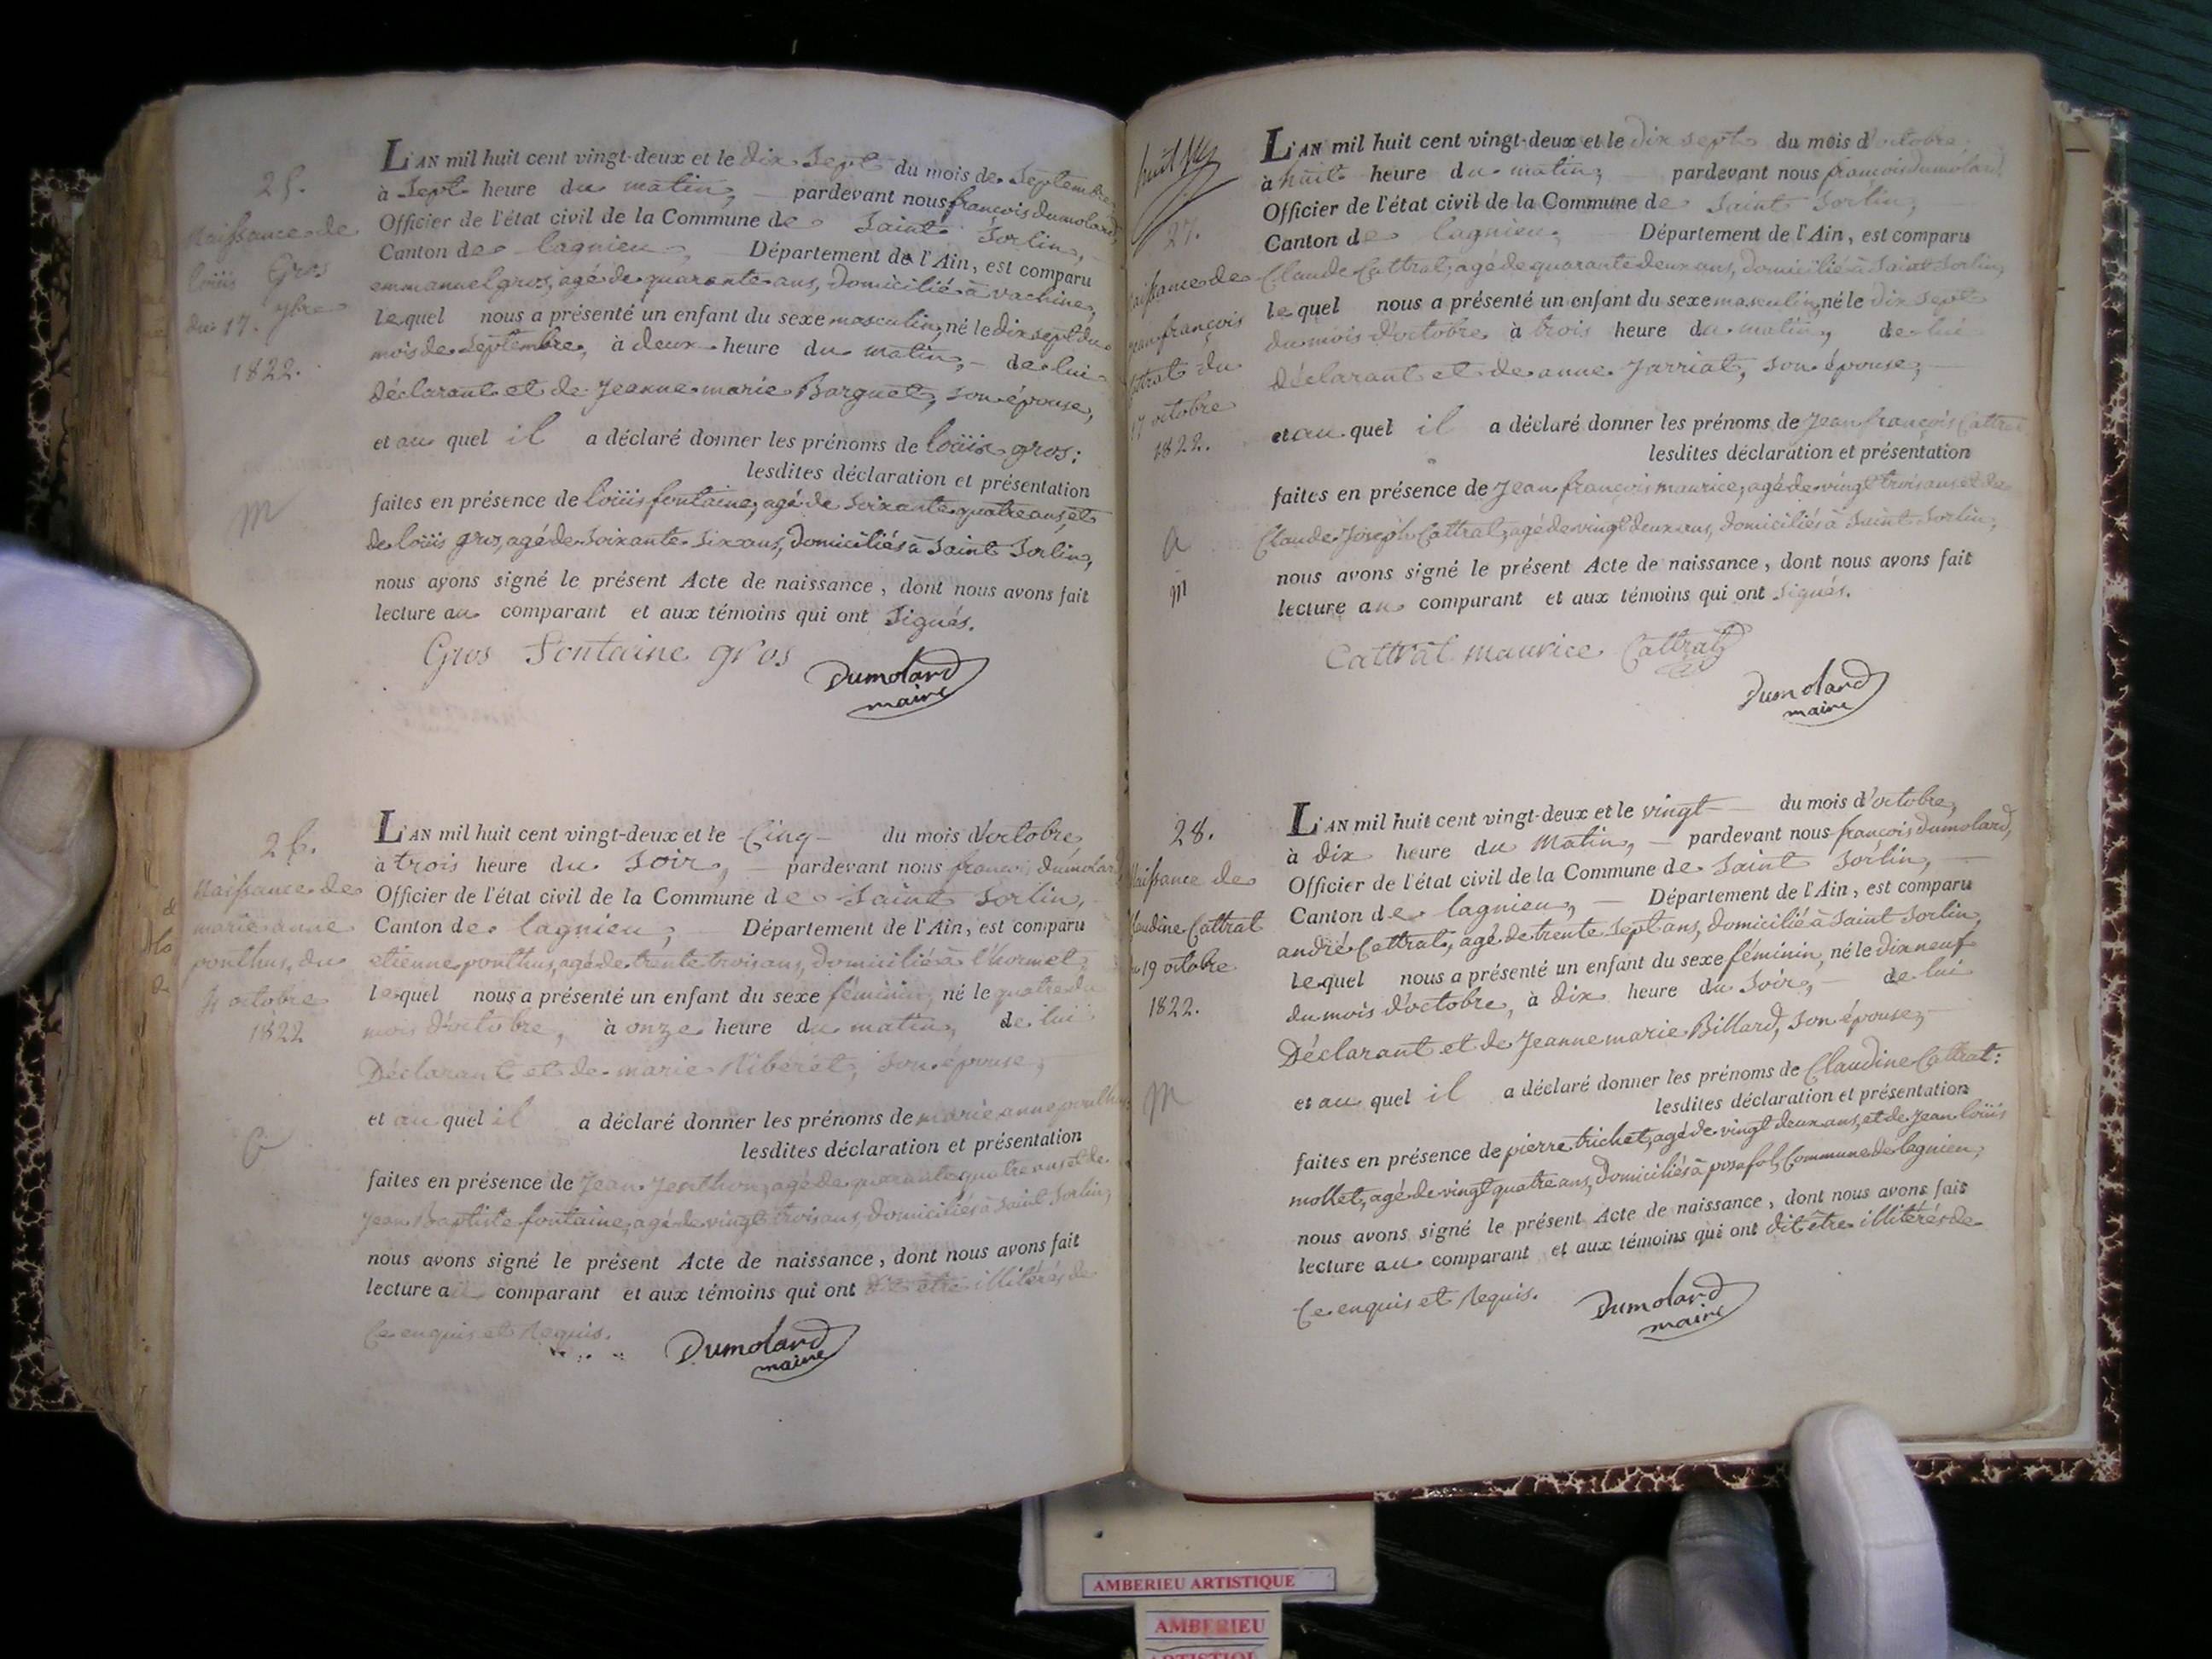 25.
Naissance de
louis Gros
du 17. 7bre
1822.
m
L'AN mil huit cent vingt-deux et le dix Sept du mois de Septembre,
à Sept heure du matin, pardevant nous françois dumolard,
Officier de l'état civil de la Commune de Saint Sorlin,
Canton de lagnieu, Département de l'Ain, est comparu
emmanuel gros, agé de quarante ans, domicilié à vachine,
lequel nous a présenté un enfant du sexe masculin, né le dix sept du
mois de Septembre, à deux heure du matin, de lui
déclarant et de Jeanne marie Barquet, son épouse,
et au quel il a déclaré donner les prénoms de loüis gros:
lesdites déclaration et présentation
faites en présence de loüis fontaine, agé de soixante quatre ans, et
de loüis gros, agé de soixante six ans, domiciliés à Saint Sorlin,
nous avons signé le présent Acte de naissance, dont nous avons fait
lecture au comparant et aux témoins qui ont signés.
Gros fontaine gros
Dumolard
maire
26.
Naissance de
marie anne
ponthus, du
4 octobre
1822
L'AN mil huit cent vingt-deux et le Cinq du mois d'octobre,
à trois heure du Soir, pardevant nous françois dumolard
Officier de l'état civil de la Commune de Saint Sorlin,
Canton de lagnieu, Département de l'Ain, est comparu
etienne ponthus, agé de trente trois ans, domicilié à l'hormet,
lequel nous a présenté un enfant du sexe féminin, né le quatre du
mois d'octobre, à onze heure du matin, de lui
Déclarant et de marie Ribéret, son épouse,
et au quel il a déclaré donner les prénoms de marie anne ponthus
lesdites déclaration et présentation
faites en présence de Jean agé de quarante quatre ans et de
Jean Baptiste fontaine, agé de vingt trois ans, domiciliés à Saint Sorlin,
nous avons signé le présent Acte de naissance, dont nous avons fait
lecture au comparant et aux témoins qui ont dit être illitérés de
Ce enquis et Requis.
Dumolard
maire
27.
Naissance de
Jean françois
Cattrat du
17 octobre
1822.
a
m
L'AN mil huit cent vingt-deux et le dix sept du mois d'octobre,
à huit heure du matin, pardevant nous françois dumolard,
Officier de l'état civil de la Commune de Saint Sorlin,
Canton de lagnieu, Département de l'Ain, est comparu
Claude Cattrat, agé de quarante deux ans, domicilié à Saint Sorlin,
lequel nous a présenté un enfant du sexe masculin, né le dix sept
du mois d'octobre à trois heure du matin, de lui
déclarant et de anne Jarriat, son épouse,
et au quel il a déclaré donner les prénoms de Jean françois Cattrat
lesdites déclaration et présentation
faites en présence de Jean françois maurice, agé de vingt trois ans et de
Claude Joseph Cattrat, agé de vingt deux ans, domiciliés à Saint Sorlin,
nous avons signé le présent Acte de naissance, dont nous avons fait
lecture au comparant et aux témoins qui ont signés.
Cattrat maurice Cattrat
Dumolard
maire
28.
Naissance de
Claudine Cattrat
du 19 octobre
1822.
m
L'AN mil huit cent vingt-deux et le vingt du mois d'octobre,
à dix heure du Matin, pardevant nous françois dumolard,
Officier de l'état civil de la Commune de Saint Sorlin,
Canton de lagnieu, Département de l'Ain, est comparu
andré Cattrat, agé de trente sept ans, domicilié à Saint Sorlin,
lequel nous a présenté un enfant du sexe féminin, né le dix neuf
du mois d'octobre, à dix heure du Soir, de lui
Déclarant et de Jeanne marie Billard, son épouse,
et au quel il a déclaré donner les prénoms de Claudine Cattrat:
lesdites déclaration et présentation
faites en présence de pierre trichet, agé de vingt deux ans, et de Jean loüis
mollet, agé de vingt quatre ans, domiciliés à posafol, Commune de lagnieu,
nous avons signé le présent Acte de naissance, dont nous avons fais
lecture au comparant et aux témoins qui ont dit être illitérés de
Ce enquis et Requis.
Dumolard
maire
AMBERIEU ARTISTIQUE
AMBERIEU
ARTISTIQUE